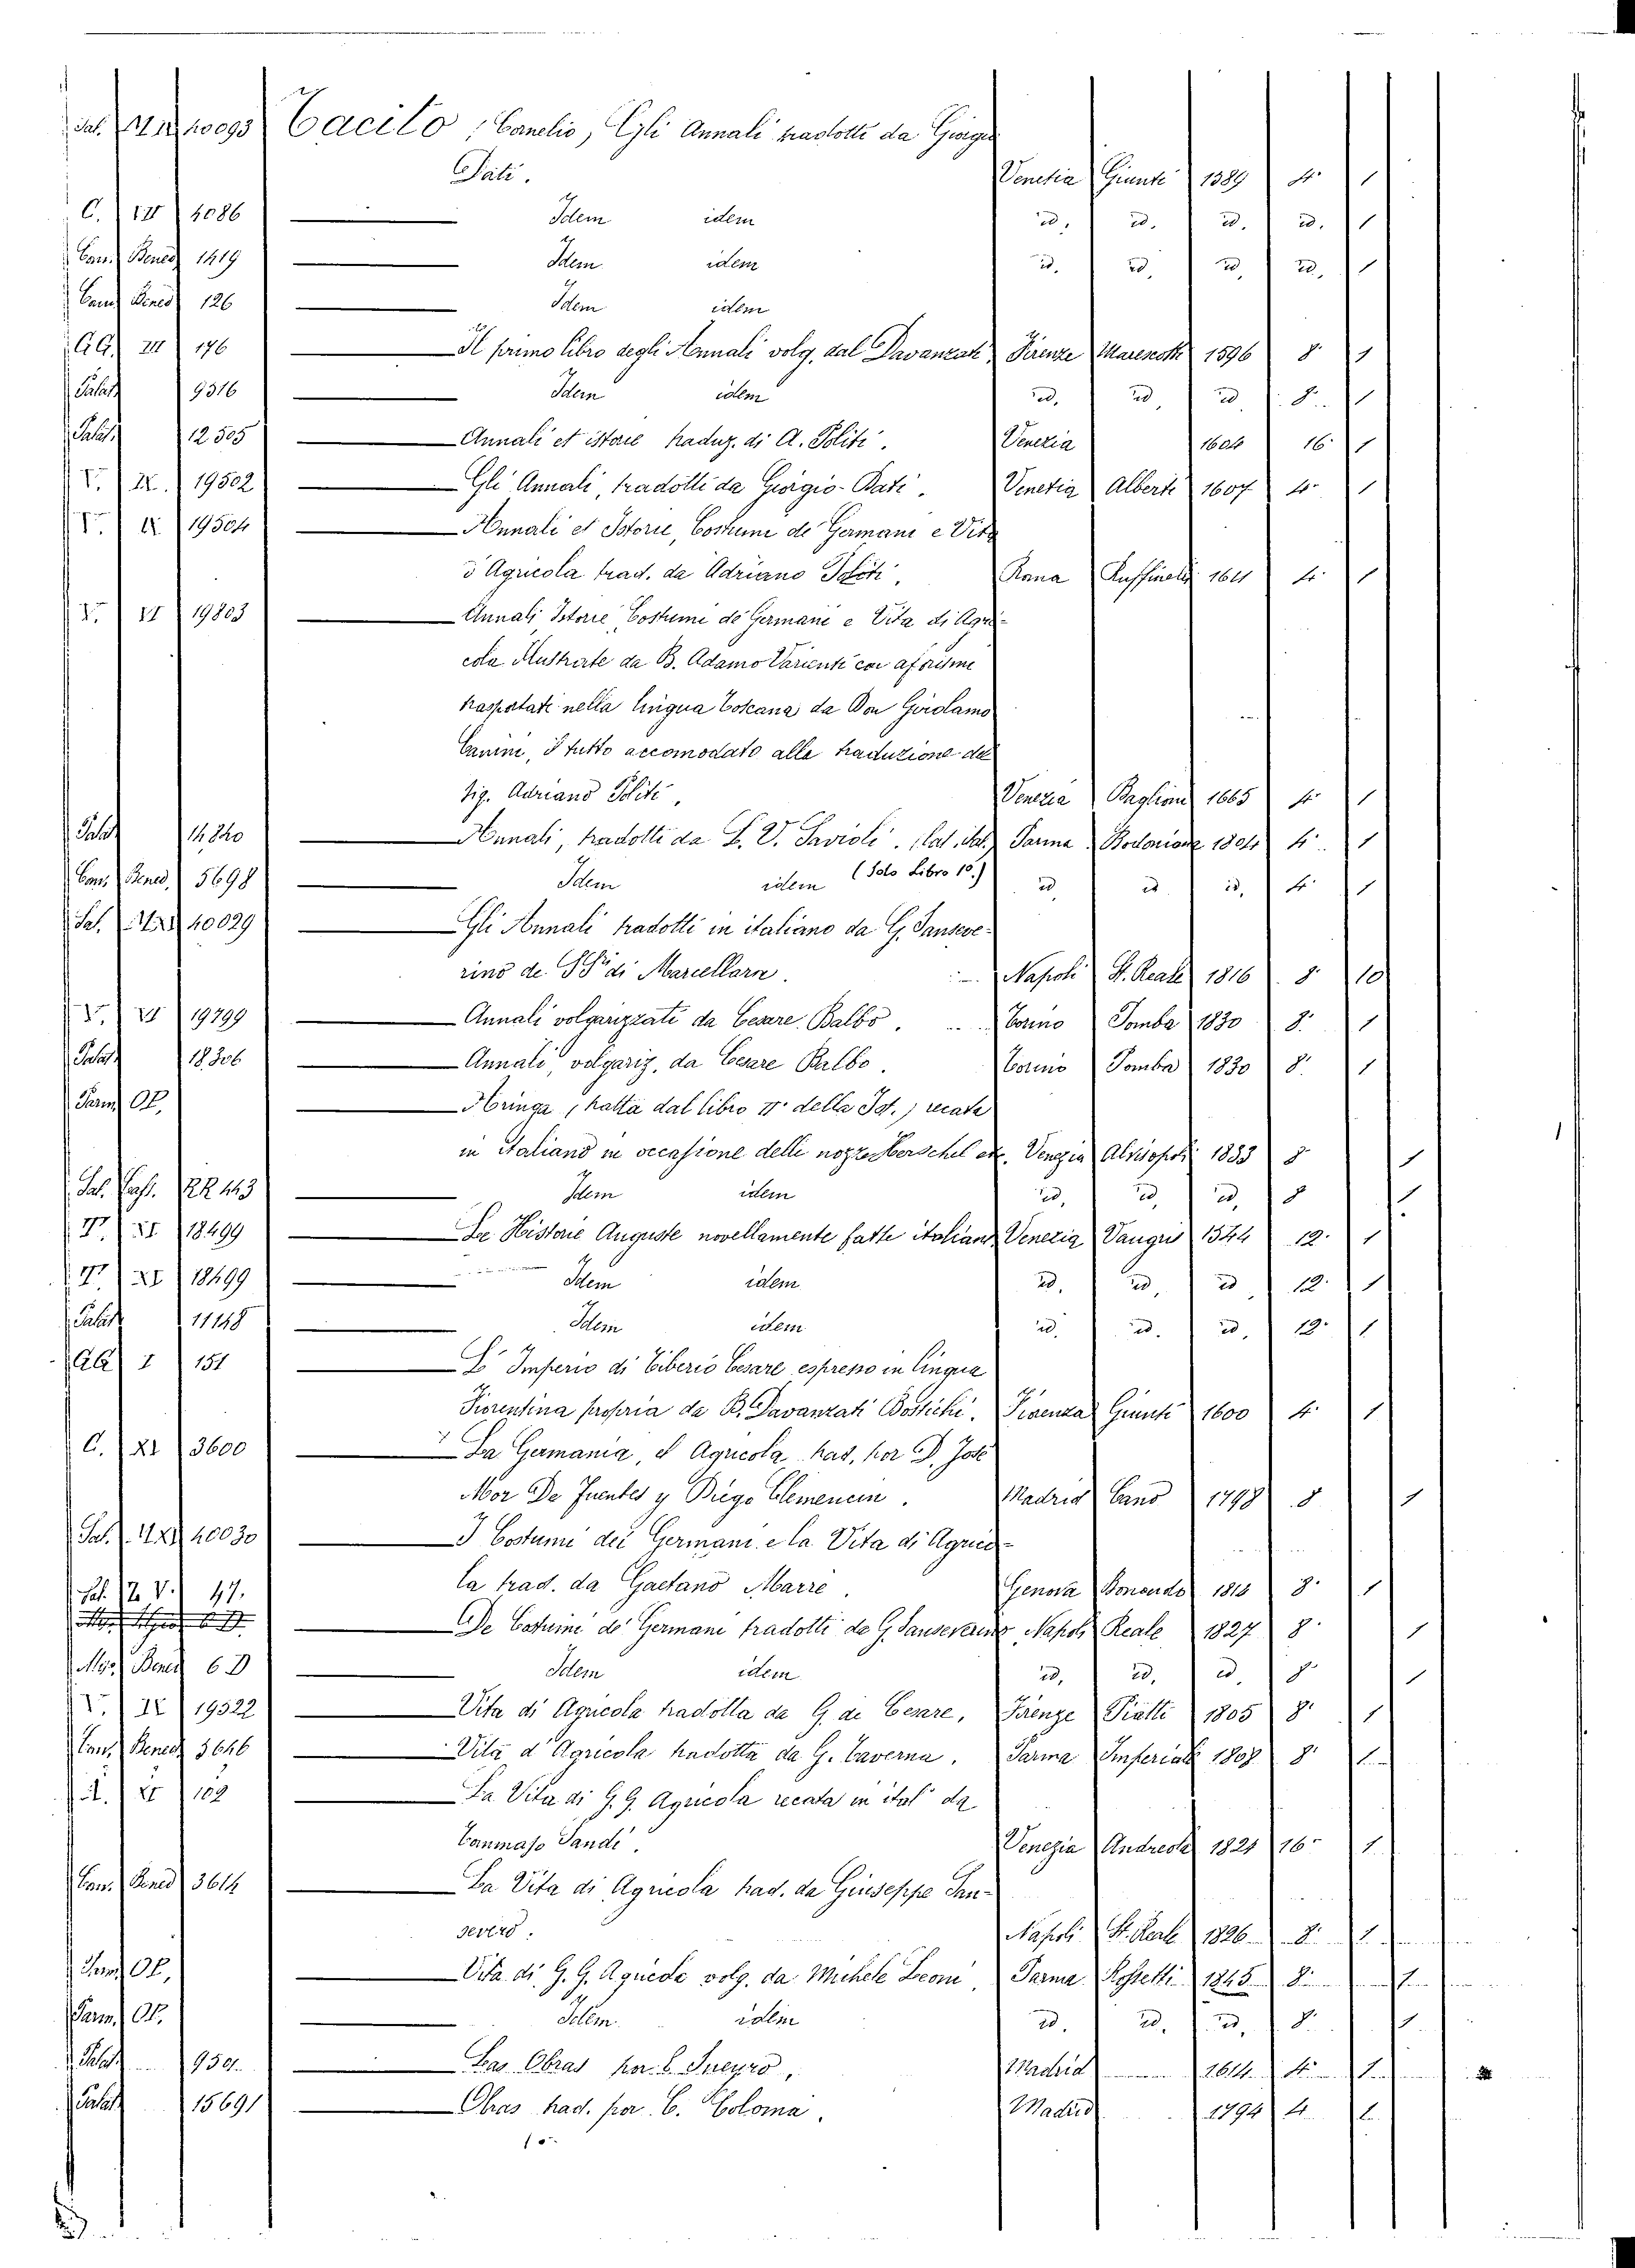 Sal. 40093 Tacito, Cornelio, Gli Annali tradotti da Giorgio
Dati. Venetia Giunti 1589 4° 1
C. IV 4086 Idem idem id. id. id. id. 1
Can. Bened. 1419 Idem idem id. id. id. id. 1
Can. Bened. 126 Idem idem
GG. III 176 Il primo libro degli Annali volg. dal Davanzati Firenze Marescotti 1596 8° 1
Palat. 9316 Idem idem id. id. id. 8. 1
Palat. 12505 Annali et istorie traduz. di A. Politi. Venezia 1604 16° 1
V. IX. 19502 Gli Annali, tradotti da Giorgio Dati. Venetia Alberti 1607 4° 1
V. IX 19504 Annali et Istorie, Costumi de Germani e Vita
d'Agricola trad. da Adriano Politi, Roma Ruffinelli 1611 4° 1
V. IX 19803 Annali Istorie Costumi de Germani e Vita di Agri-
cola illustrate da B. Adamo Varienti coi aforismi
trasportati nella lingua Toscana da Don Girolamo
Canini, il tutto accomodato alla traduzione del
sig. Adriano Politi, Venezia Baglioni 1665 4° 1
Palat. 14340 Annali, tradotti da L. V. Savioli. (lat. ital.) Parma Bodoniana 1804 4° 1
Can. Bened. 5698 Idem idem (Solo Libro 1°.) id. id. id. 4° 1
Sal. 40029 Gli Annali tradotti in italiano da G. Sanseve-
rino de PP.i di Marcellara. Napoli St. Reale 1816 8° 10
V. 19799 Annali volgarizzati da Cesare Balbo. Torino Pomba 1830 8° 1
Palat. 18306 Annali, volgariz. da Cesare Balbo. Torino Pomba 1830 8° 1
Parm. Op. Aringa, tratta dal libro II della Ist., recata
in Italiano in occasione delle nozze Herschel etc. Venezia Alvisopoli 1833 8° 1
Sal. Cass. RR 443 Idem idem id. id. id. 8° 1
V. XI 18499 Le Historie Auguste novellamente fatte italiane Venezia Vaugris 1544 12° 1
V. XI 18499 Idem idem id. id. id. 12° 1
Palat. 11148 Idem idem id. id. id. 12° 1
GG. I 151 L'Imperio di Tiberio Cesare espresso in lingua
Fiorentina propria da B. Davanzati Bostichi. Fiorenza Giunti 1600 4° 1
C. XI 3600 La Germania, et Agricola trad. por D. José
Mor De Fuentes y Diego Clemencin. Madrid Cano 1798 8 1
Sal. 40030 I Costumi dei Germani e la Vita di Agrico-
la trad. da Gaetano Marrè. Genova Bonaudo 1814 8° 1
Sal. V. 47. De Costumi de' Germani tradotti da G. Sanseverino Napoli Reale 1827 8° 1
Misc. Bened. 6 D Idem idem id. id. id. 8° 1
V. IX 19322 Vita di Agricola tradotta da G. de Cesare, Firenze Piatti 1805 8° 1
Can. Bened. 3646 Vita d'Agricola tradotta da G. Taverna. Parma Imperiale 1808 8° 1
A. II 102 La Vita di G. G. Agricola recata in ital.° da
Tommaso Sandi. Venezia Andreola 1821 16° 1
Can. Bened. 3614 La Vita di Agricola trad. da Giuseppe San-
severo. Napoli St. Reale 1826 8° 1
Parm. Op. Vita di G. G. Agricola volg. da Michele Leoni, Parma Rossetti 1845 8° 1
Parm. Op. Idem idem id. id. id. 8° 1
Palat. 950 Las Obras por E. Sueyro, Madrid 1614 4° 1
Palat. 15691 Obras trad. por C. Coloma. Madrid 1794 4 1